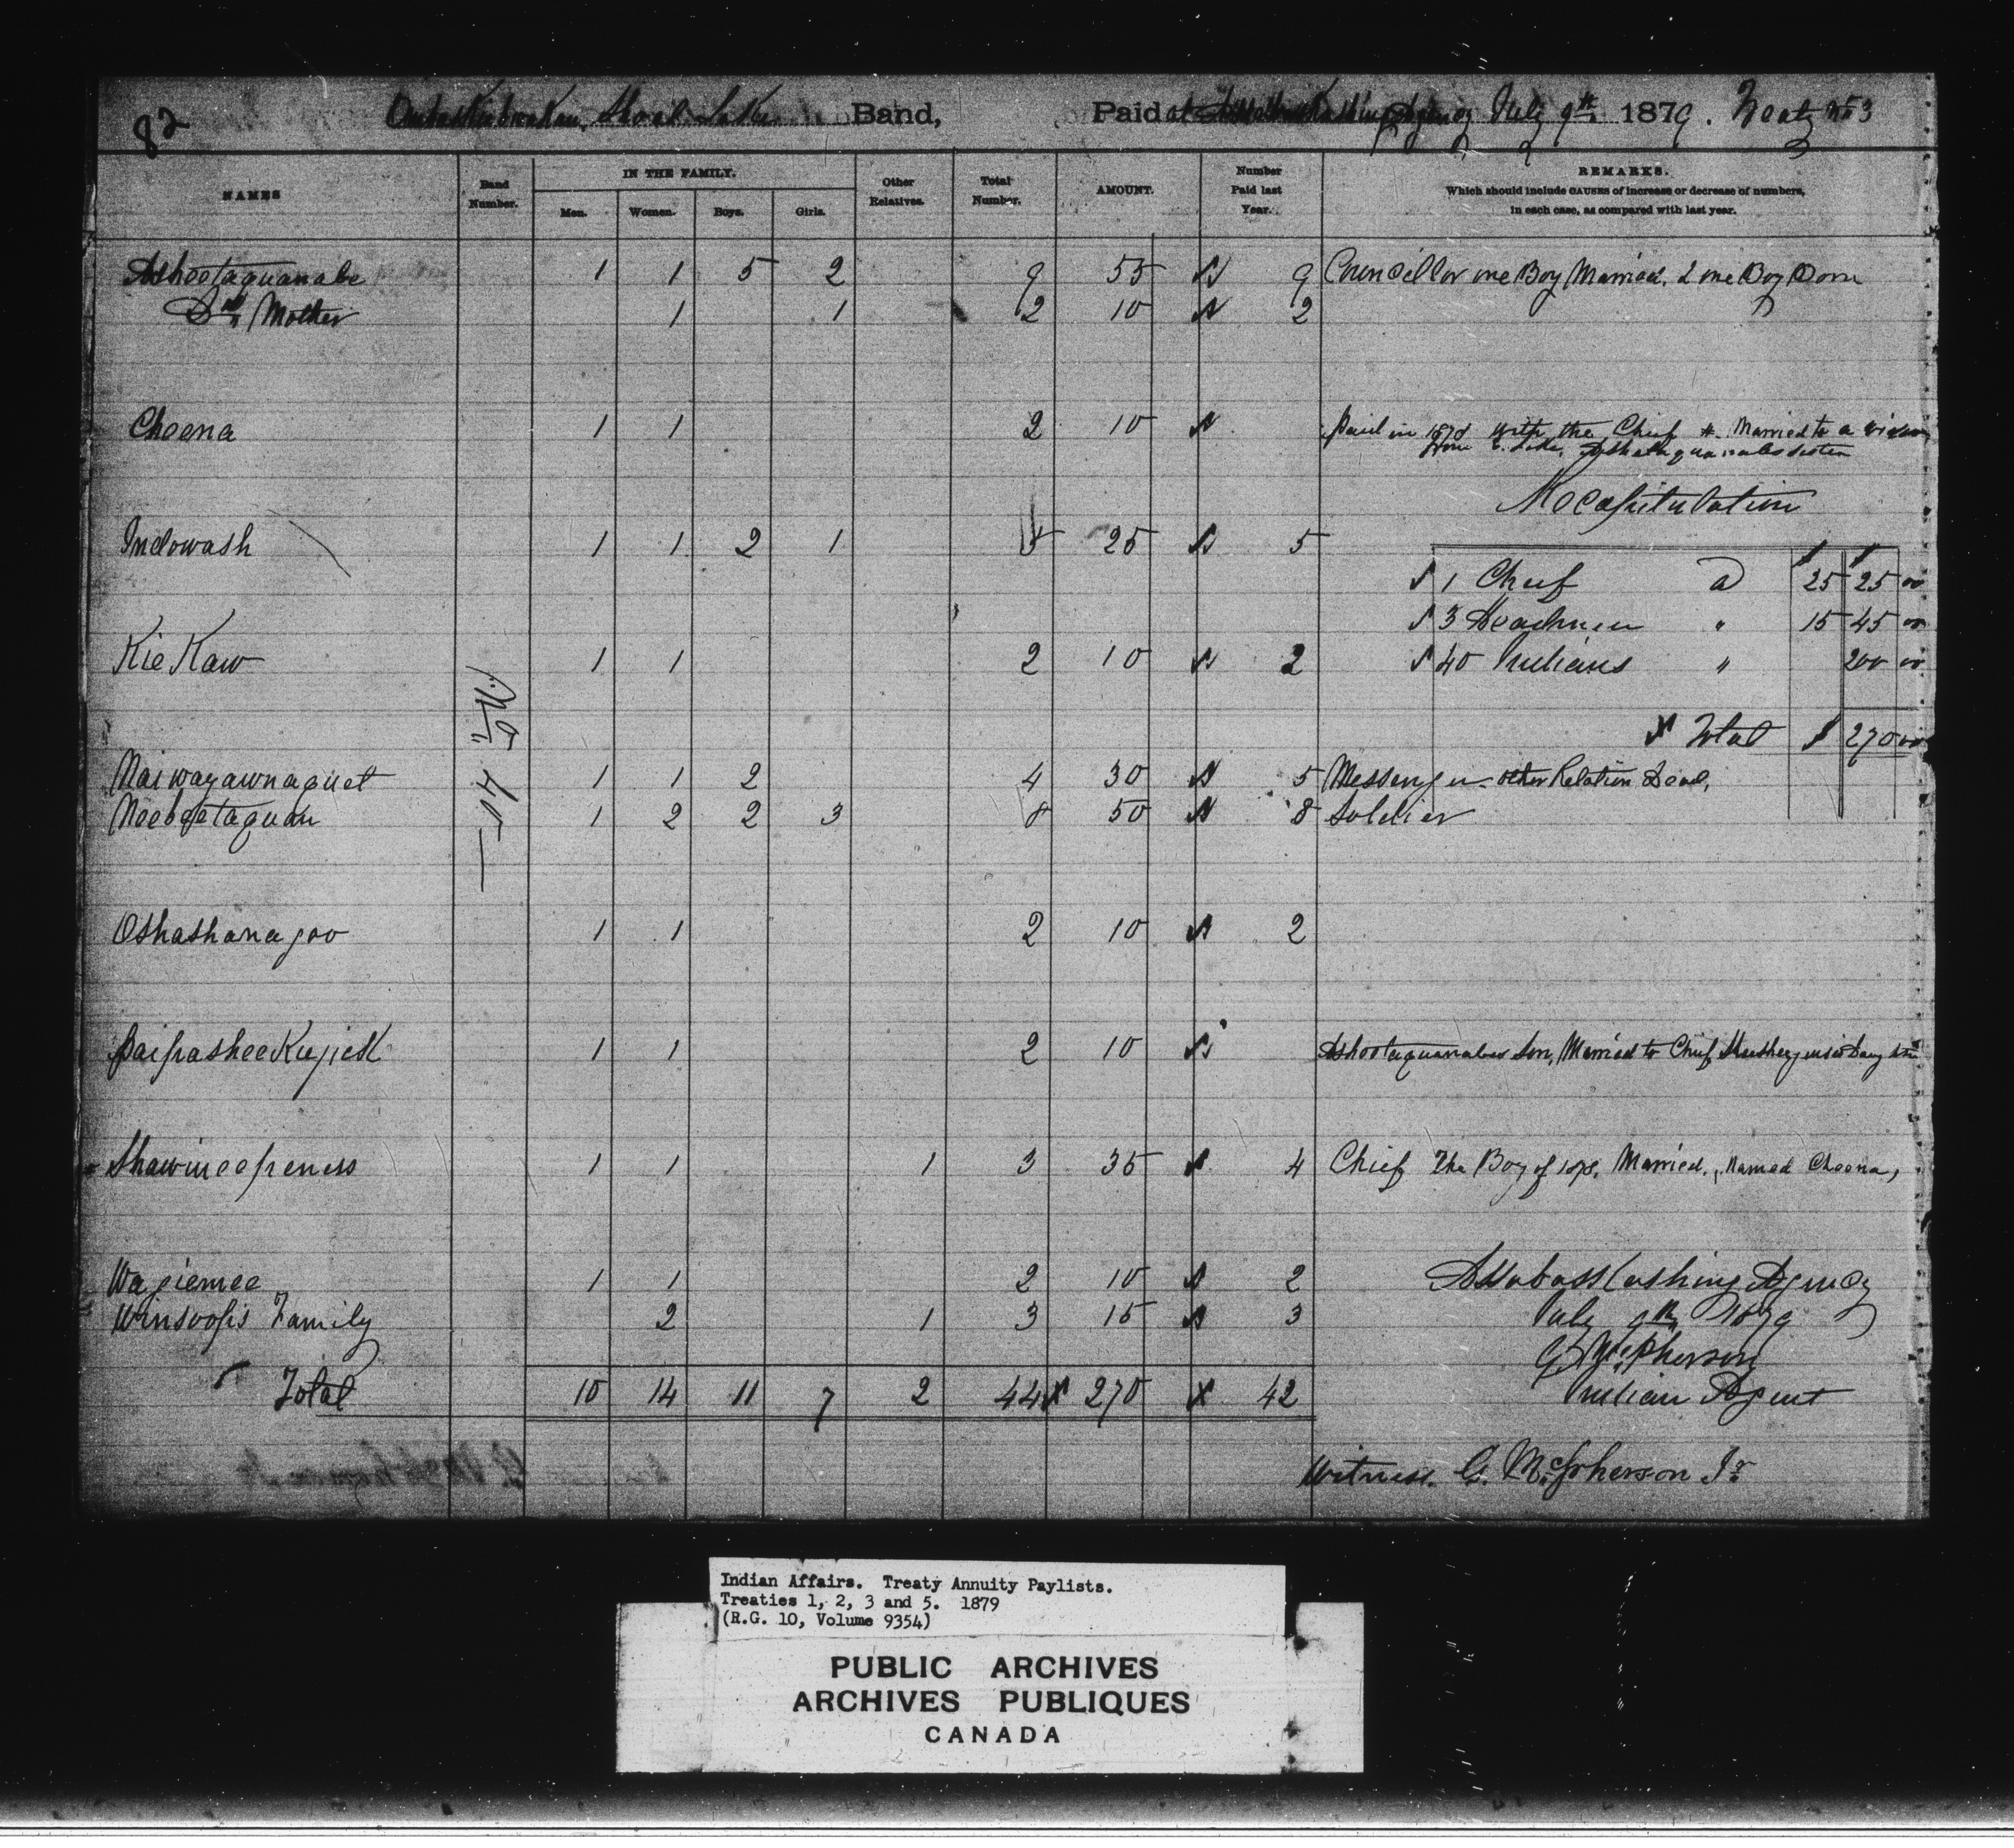 82 Shoal Lake Band, Paid at Agency July 9th 1879. Treaty No 3
NAMES Band Number. IN THE FAMILY. Men. Women. Boys. Girls. Other Relatives. Total Number. AMOUNT. Number Paid last Year. REMARKS.
Which should include CAUSES of increase or decrease of numbers,
in each case, as compared with last year.
Ashootaquanabe 1 1 5 2 9 55 9 Councillor one Boy Married, & one Boy Born
Do Mother 1 1 2 10 2
Cheena 1 1 2 10 Paid in 1878 with the Chief Married to a widow
from Lake, sister
Recapitulation
Indowash 1 1 2 1 5 25 5
1 Chief @ 25 25 00
3 Headmen " 15 45 00
KieKaw 1 1 2 10 2
40 Indians " 200 00
Total $ 270 00
Naiwayawnaquet 1 1 2 4 30 5 Messenger other Relation Dead,
Neebeetaquan 1 2 2 3 8 50 8 Soldier
Oshashanagoo 1 1 2 10 2
PaipasheeKujiek 1 1 2 10 Ashootaquanabes Son, Married to Chief Daughter
Shawineepeness 1 1 1 3 35 4 Chief The Boy of 1878, Married, named Cheena,
Wagiemee 1 1 2 10 2
Winsoop's Family 2 1 3 15 3
Assabasskashing Agency
July 9th 1879
G McPherson
Indian Agent
Total 10 14 11 7 2 44 270 42
Witness. G. McPherson Jr
Indian Affairs. Treaty Annuity Paylists.
Treaties 1, 2, 3 and 5. 1879
(R.G. 10, Volume 9354)
PUBLIC ARCHIVES
ARCHIVES PUBLIQUES
CANADA